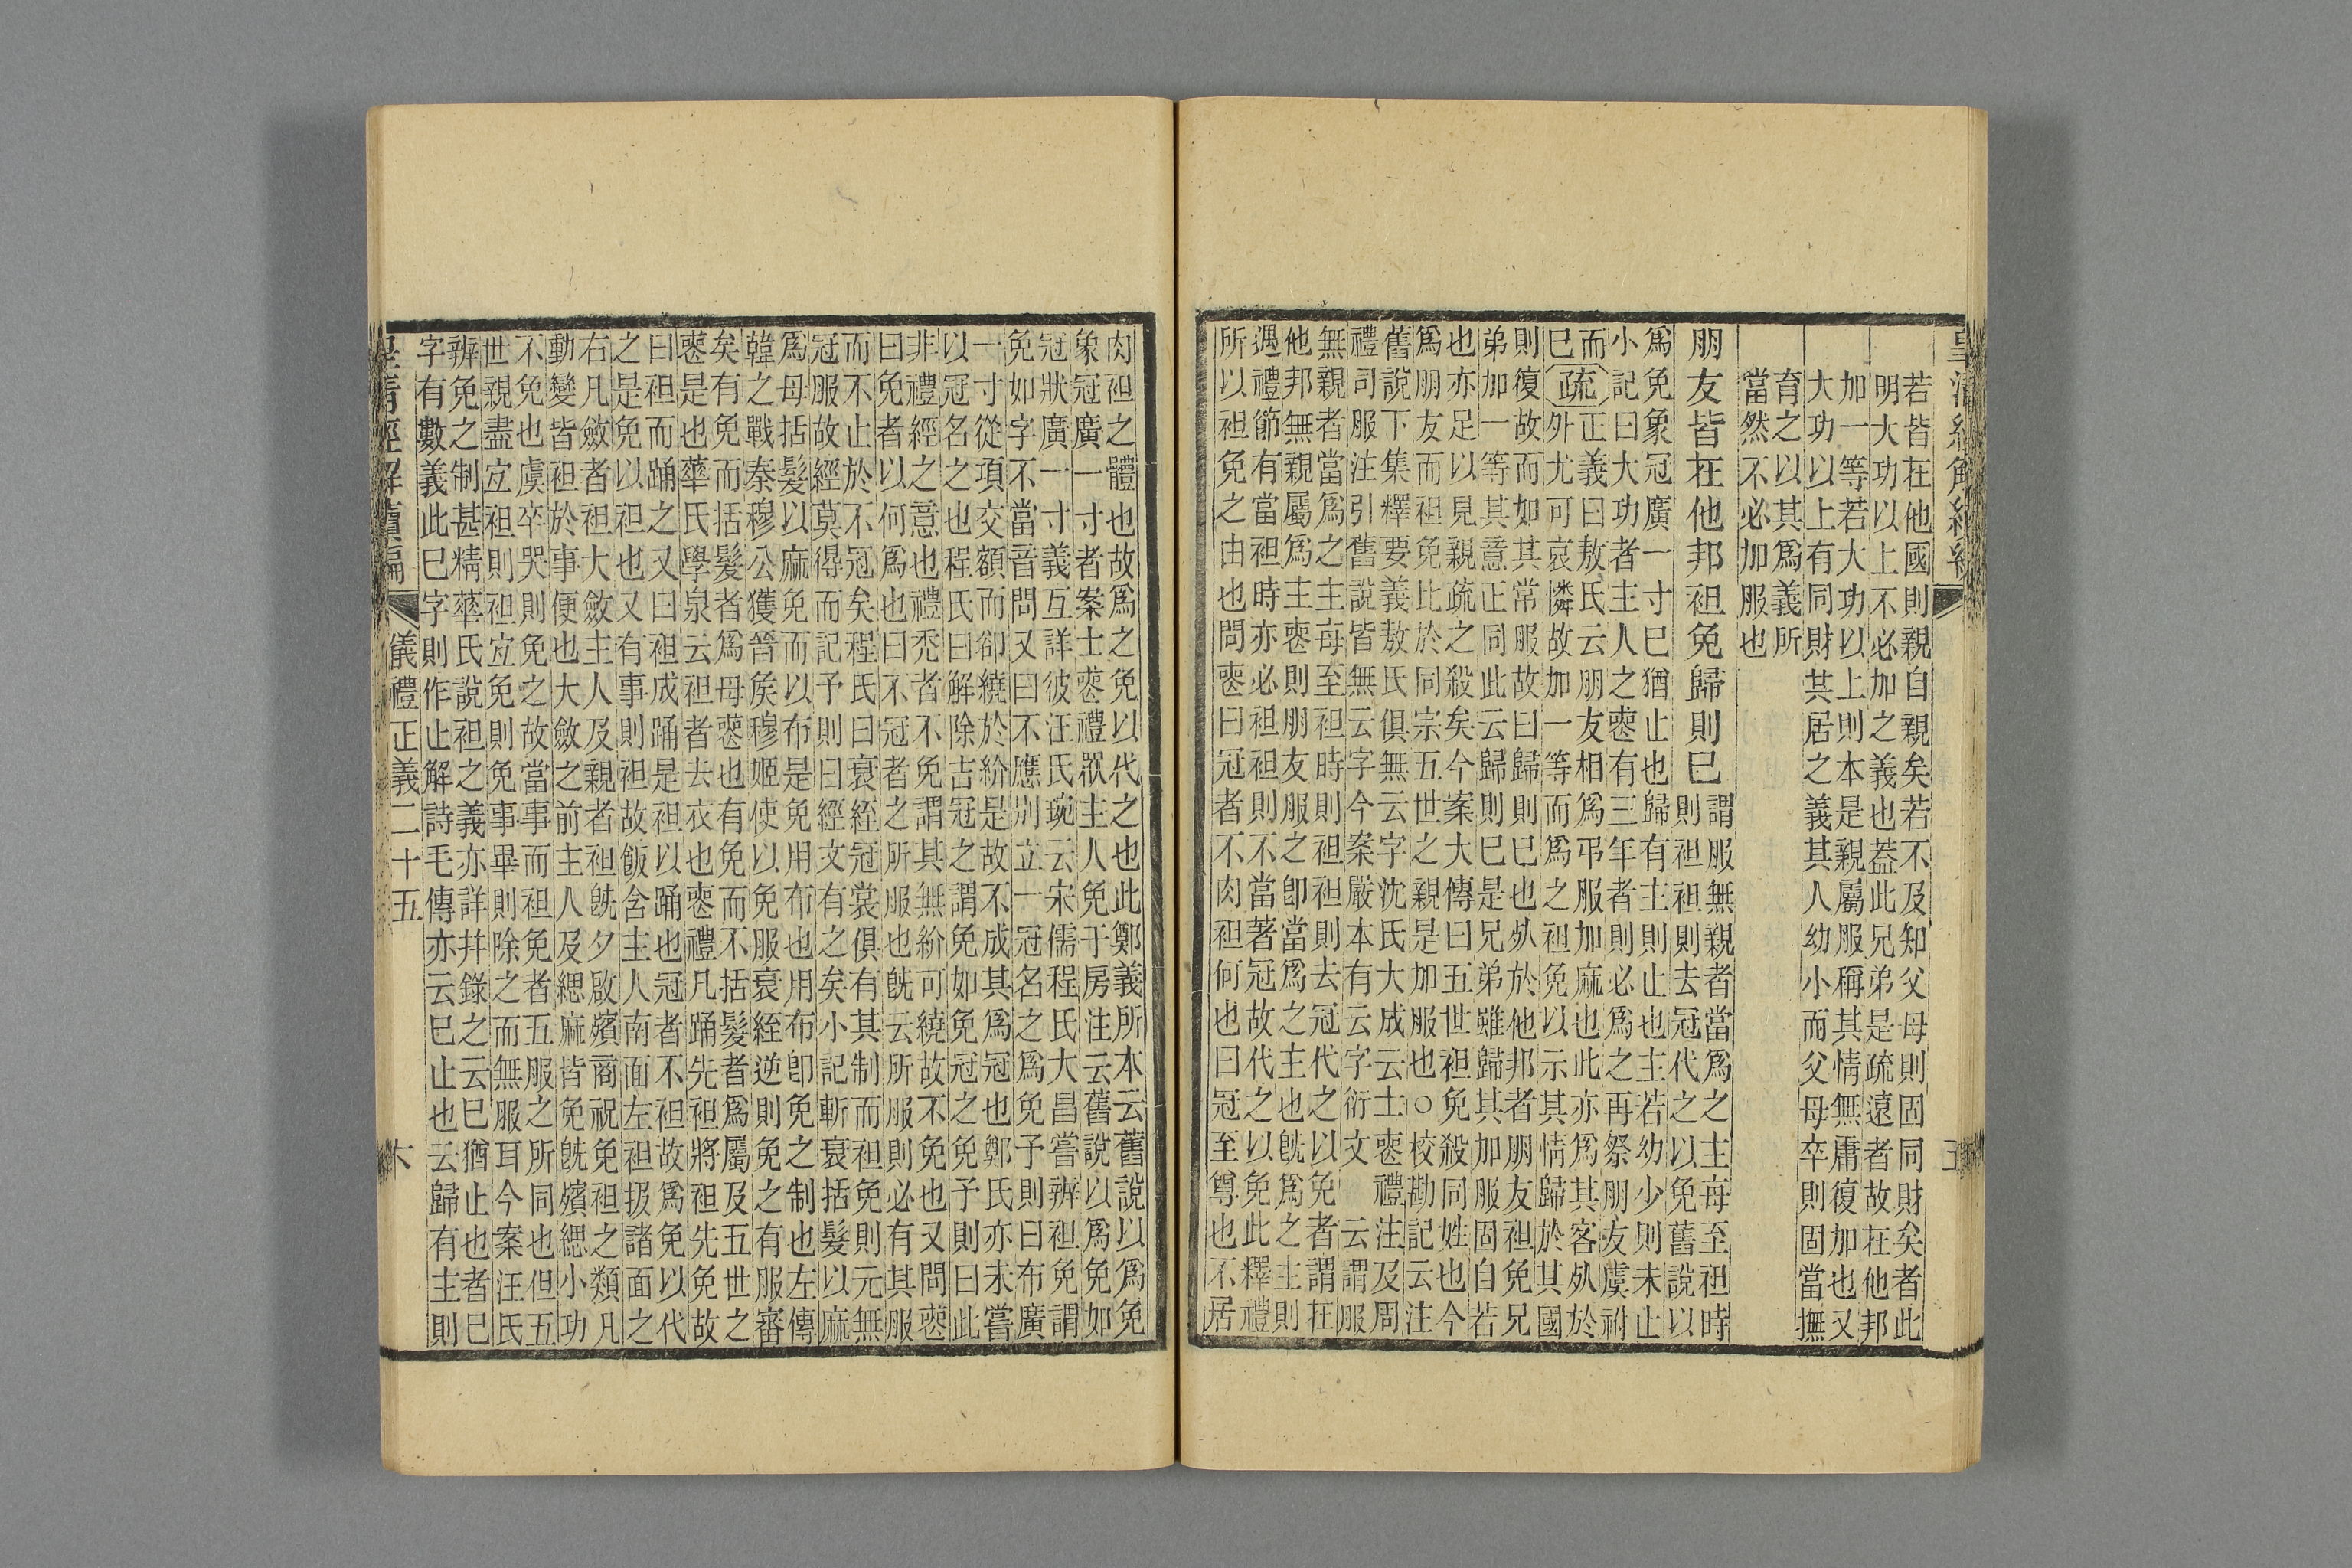 皇清經解續編 五
若皆在他國則親自親矣若不及知父母則固同財矣者此
明大功以上不必加之義也葢此兄弟是疏遠者故在他邦
加一等若大功以上則本是親屬服稱其情無庸復加也又
大功以上有同財其居之義其人幼小而父母卒則固當撫
育之以其爲義所
當然不必加服也
朋友皆在他邦袒免歸則已
謂服無親者當爲之主每至袒時
則袒袒則去冠代之以免舊說以
爲免象冠廣一寸已猶止也歸有主則止也主若幼少則未止
小記曰大功者主人之喪有三年者則必爲之再祭朋友虞祔
而
已
疏
正義曰敖氏云朋友相爲弔服加麻也此亦爲其客㱙於
外尤可哀憐故加一等而爲之袒免以示其情歸於其國
則復故而如其常服故曰歸則已也㱙於他邦者朋友袒免兄
弟加一等其意正同此云歸則已是兄弟雖歸其加服固自若
也亦足以見親疏之殺矣今案大傳曰五世袒免殺同姓也今
爲朋友而袒免比於同宗五世之親是加服也○校勘記云注
舊說下集釋要義敖氏俱無云字沈氏大成云士喪禮注及周
禮司服注引舊說皆無云字今案嚴本有云字衍文 云謂服
無親者當爲之主每至袒時則袒袒則去冠代之以免者謂在
他邦無親屬爲主喪則朋友服之卽當爲之主也旣爲之主則
遇禮節有當袒時亦必袒袒則不當著冠故代之以免此釋禮
所以袒免之由也問喪曰冠者不肉袒何也曰冠至尊也不居
肉袒之體也故爲之免以代之也此鄭義所本云舊說以爲免
象冠廣一寸者案士喪禮眾主人免于房注云舊說以爲免如
冠狀廣一寸義互詳彼汪氏琬云宋儒程氏大昌嘗辨袒免謂
免如字不當音問又曰不應別立一冠名之爲免予則曰布廣
一寸從項交額而卻繞於紒是故不成其爲冠也鄭氏亦未嘗
以冠名之也程氏曰解除古冠之謂免如免冠之免予則曰此
非禮經之意也禮禿者不免謂其無紒可繞故不免也又問喪
曰免者以何爲也曰不冠者之所服也旣云所服則必有其服
而不止於不冠矣程氏曰衰絰冠裳俱有其制而袒免則元無
冠服故經莫得而記予則曰經文有之矣小記斬衰括髮以麻
爲母括髮以麻免而以布是免用布也用布卽免之制也左傳
韓之戰秦穆公獲晉矦穆姬使以免服衰絰逆則免之有服審
矣有免而括髮者爲母喪也有免而不括髮者爲屬及五世之
喪是也華氏學泉云袒者去衣也喪禮凡踊先袒將袒先免故
曰袒而踊之又曰袒成踊是袒以踊也冠者不袒故爲免以代
之是免以袒也又有事則袒故飯含主人南面左袒扱諸面之
右凡斂者袒大斂主人及親者袒旣夕啟殯商祝免袒之類凡
動變皆袒於事便也大斂之前主人及緦麻皆免旣殯緦小功
不免也虞卒哭則免之故當事而袒免者五服之所同也但五
世親盡宜袒則袒宜免則免事畢則除之而無服耳今案汪氏
辨免之制甚精華氏說袒之義亦詳幷錄之云已猶止也者已
字有數義此已字則作止解詩毛傳亦云已止也云歸有主則
皇清經解續編 儀禮正義二十五 六